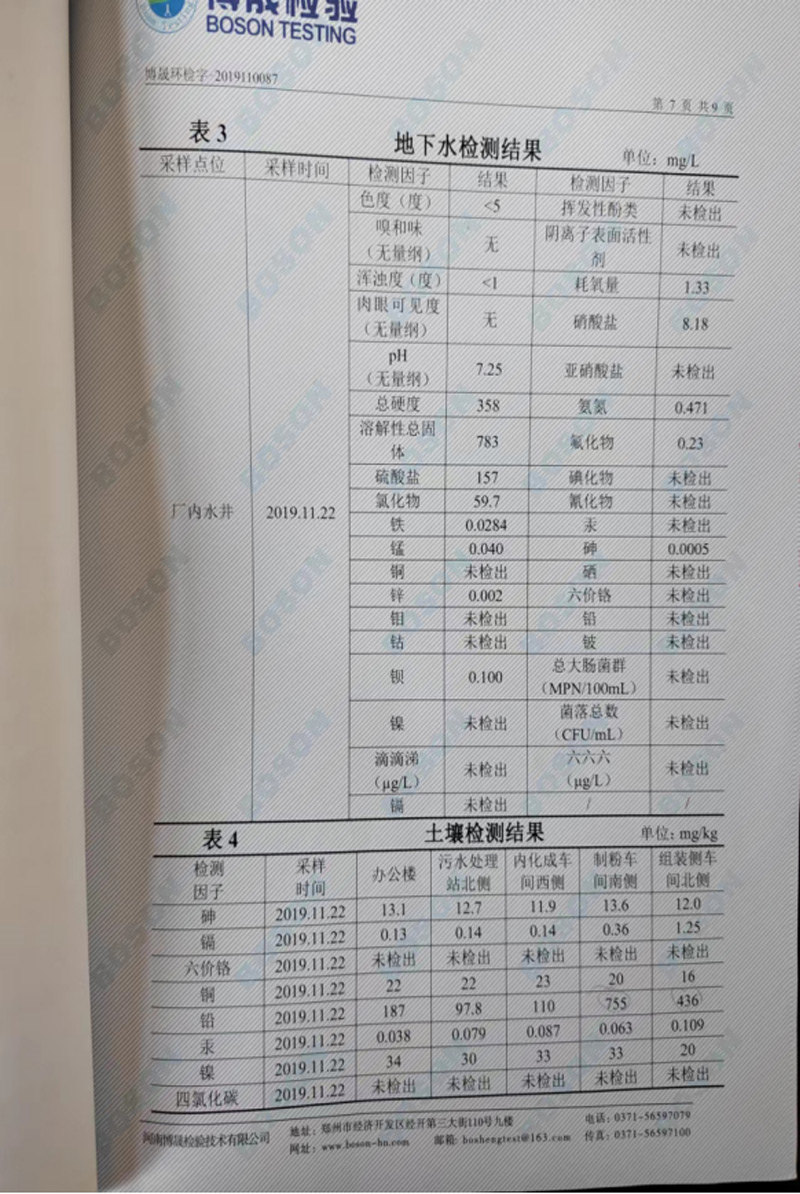 博晟检验
BOSON TESTING
博晟环检字 2019110087
第 7 页 共 9 页
表 3 地下水检测结果 单位：mg/L
采样点位 采样时间 检测因子 结果 检测因子 结果
厂内水井 2019.11.22
色度（度） <5 挥发性酚类 未检出
嗅和味（无量纲） 无 阴离子表面活性剂 未检出
浑浊度（度） <1 耗氧量 1.33
肉眼可见度（无量纲） 无 硝酸盐 8.18
pH（无量纲） 7.25 亚硝酸盐 未检出
总硬度 358 氨氮 0.471
溶解性总固体 783 氟化物 0.23
硫酸盐 157 碘化物 未检出
氯化物 59.7 氰化物 未检出
铁 0.0284 汞 未检出
锰 0.040 砷 0.0005
铜 未检出 硒 未检出
锌 0.002 六价铬 未检出
钼 未检出 铅 未检出
钴 未检出 铍 未检出
钡 0.100 总大肠菌群（MPN/100mL） 未检出
镍 未检出 菌落总数（CFU/mL） 未检出
滴滴涕（μg/L） 未检出 六六六（μg/L） 未检出
镉 未检出 / /
表 4 土壤检测结果 单位：mg/kg
检测因子 采样时间 办公楼 污水处理站北侧 内化成车间西侧 制粉车间南侧 组装侧车间北侧
砷 2019.11.22 13.1 12.7 11.9 13.6 12.0
镉 2019.11.22 0.13 0.14 0.14 0.36 1.25
六价铬 2019.11.22 未检出 未检出 未检出 未检出 未检出
铜 2019.11.22 22 22 23 20 16
铅 2019.11.22 187 97.8 110 755 436
汞 2019.11.22 0.038 0.079 0.087 0.063 0.109
镍 2019.11.22 34 30 33 33 20
四氯化碳 2019.11.22 未检出 未检出 未检出 未检出 未检出
河南博晟检验技术有限公司
地址：郑州市经济开发区经开第三大街110号九楼 电话：0371-56597079
网址：www.boson-hn.com 邮箱：boshengtest@163.com 传真：0371-56597100